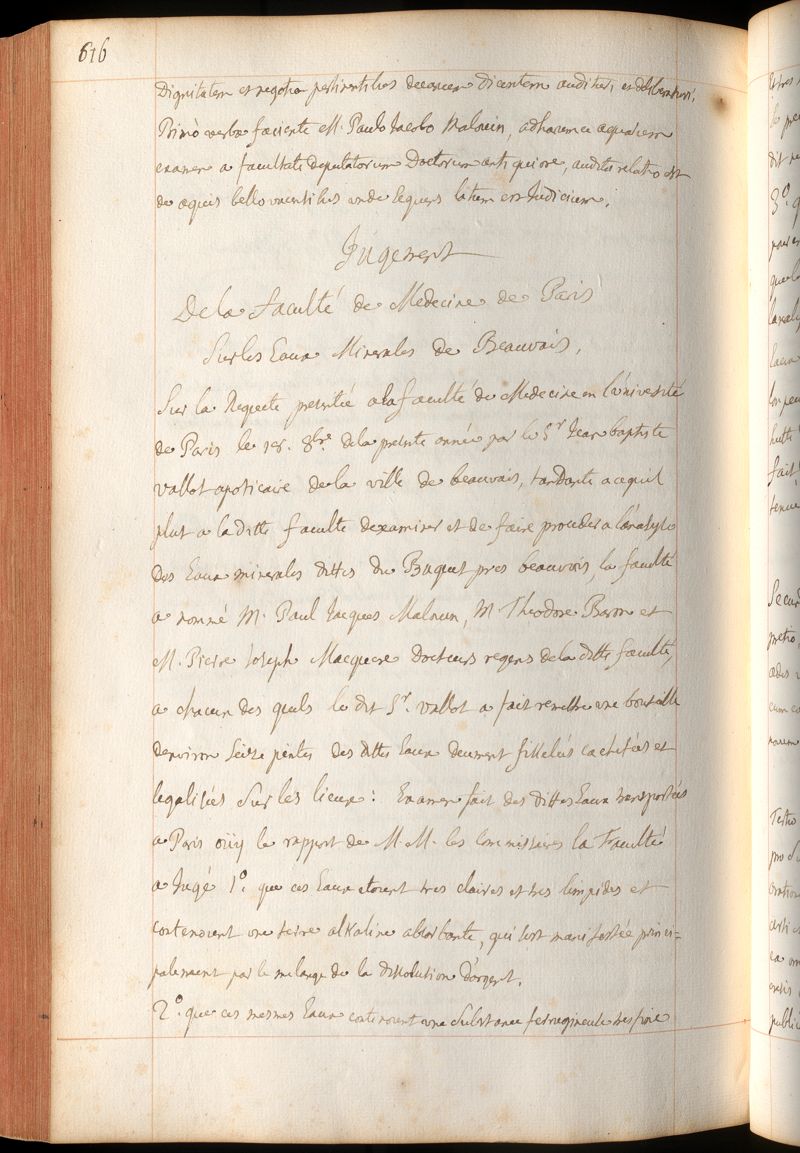 616
Dignitatem et negotia pertinentibus decanum dicentem auditur, et deliberatur.
Primò verba faciente M. Paulo Jacobo Malouin, adharum aquarum
examen a facultate deputatorum Doctorum antiquiore, audita relatio est
de aquis bellovacensibus unde sequens latum est Judicium.
Jugement
De la Faculté de Medecine de Paris
Sur les Eaux Minerales de Beauvais.
Sur la Requete presentée a la faculté de Medecine en l'université
de Paris le 18. 8bre. de la presente année par le Sr Jean baptiste
vallot apoticaire de la ville de beauvais, tendante a ce quil
plut a la ditte faculte dexaminer et de faire proceder a lanalyse
des Eaux minerales dittes du Baquet pres beauvois, la faculté
a nommé M. Paul Jacques Malouin, M. Theodore Baron et
M. Pierre Joseph Macquere docteurs regens de la ditte faculté,
a chacun des quels le dit Sr. vallot a fait remettre une bouteille
denviron seize pintes des dittes Eaux deument fissellés cachétées et
legalisées sur les lieux: Examen fait des dittes Eaux transportées
a Paris oüiÿ le rapport de M. M. les Commissaires la Faculté
a Jugé 1°. que ces Eaux etoient tres claires et tres limpides et
contenoient une terre alkaline absorbante, qui sest manifestée princi=
palement par le melange de la dissolution d'argent.
2°. que ces mesmes Eaux contenoient une substance ferrugineuse tres fine